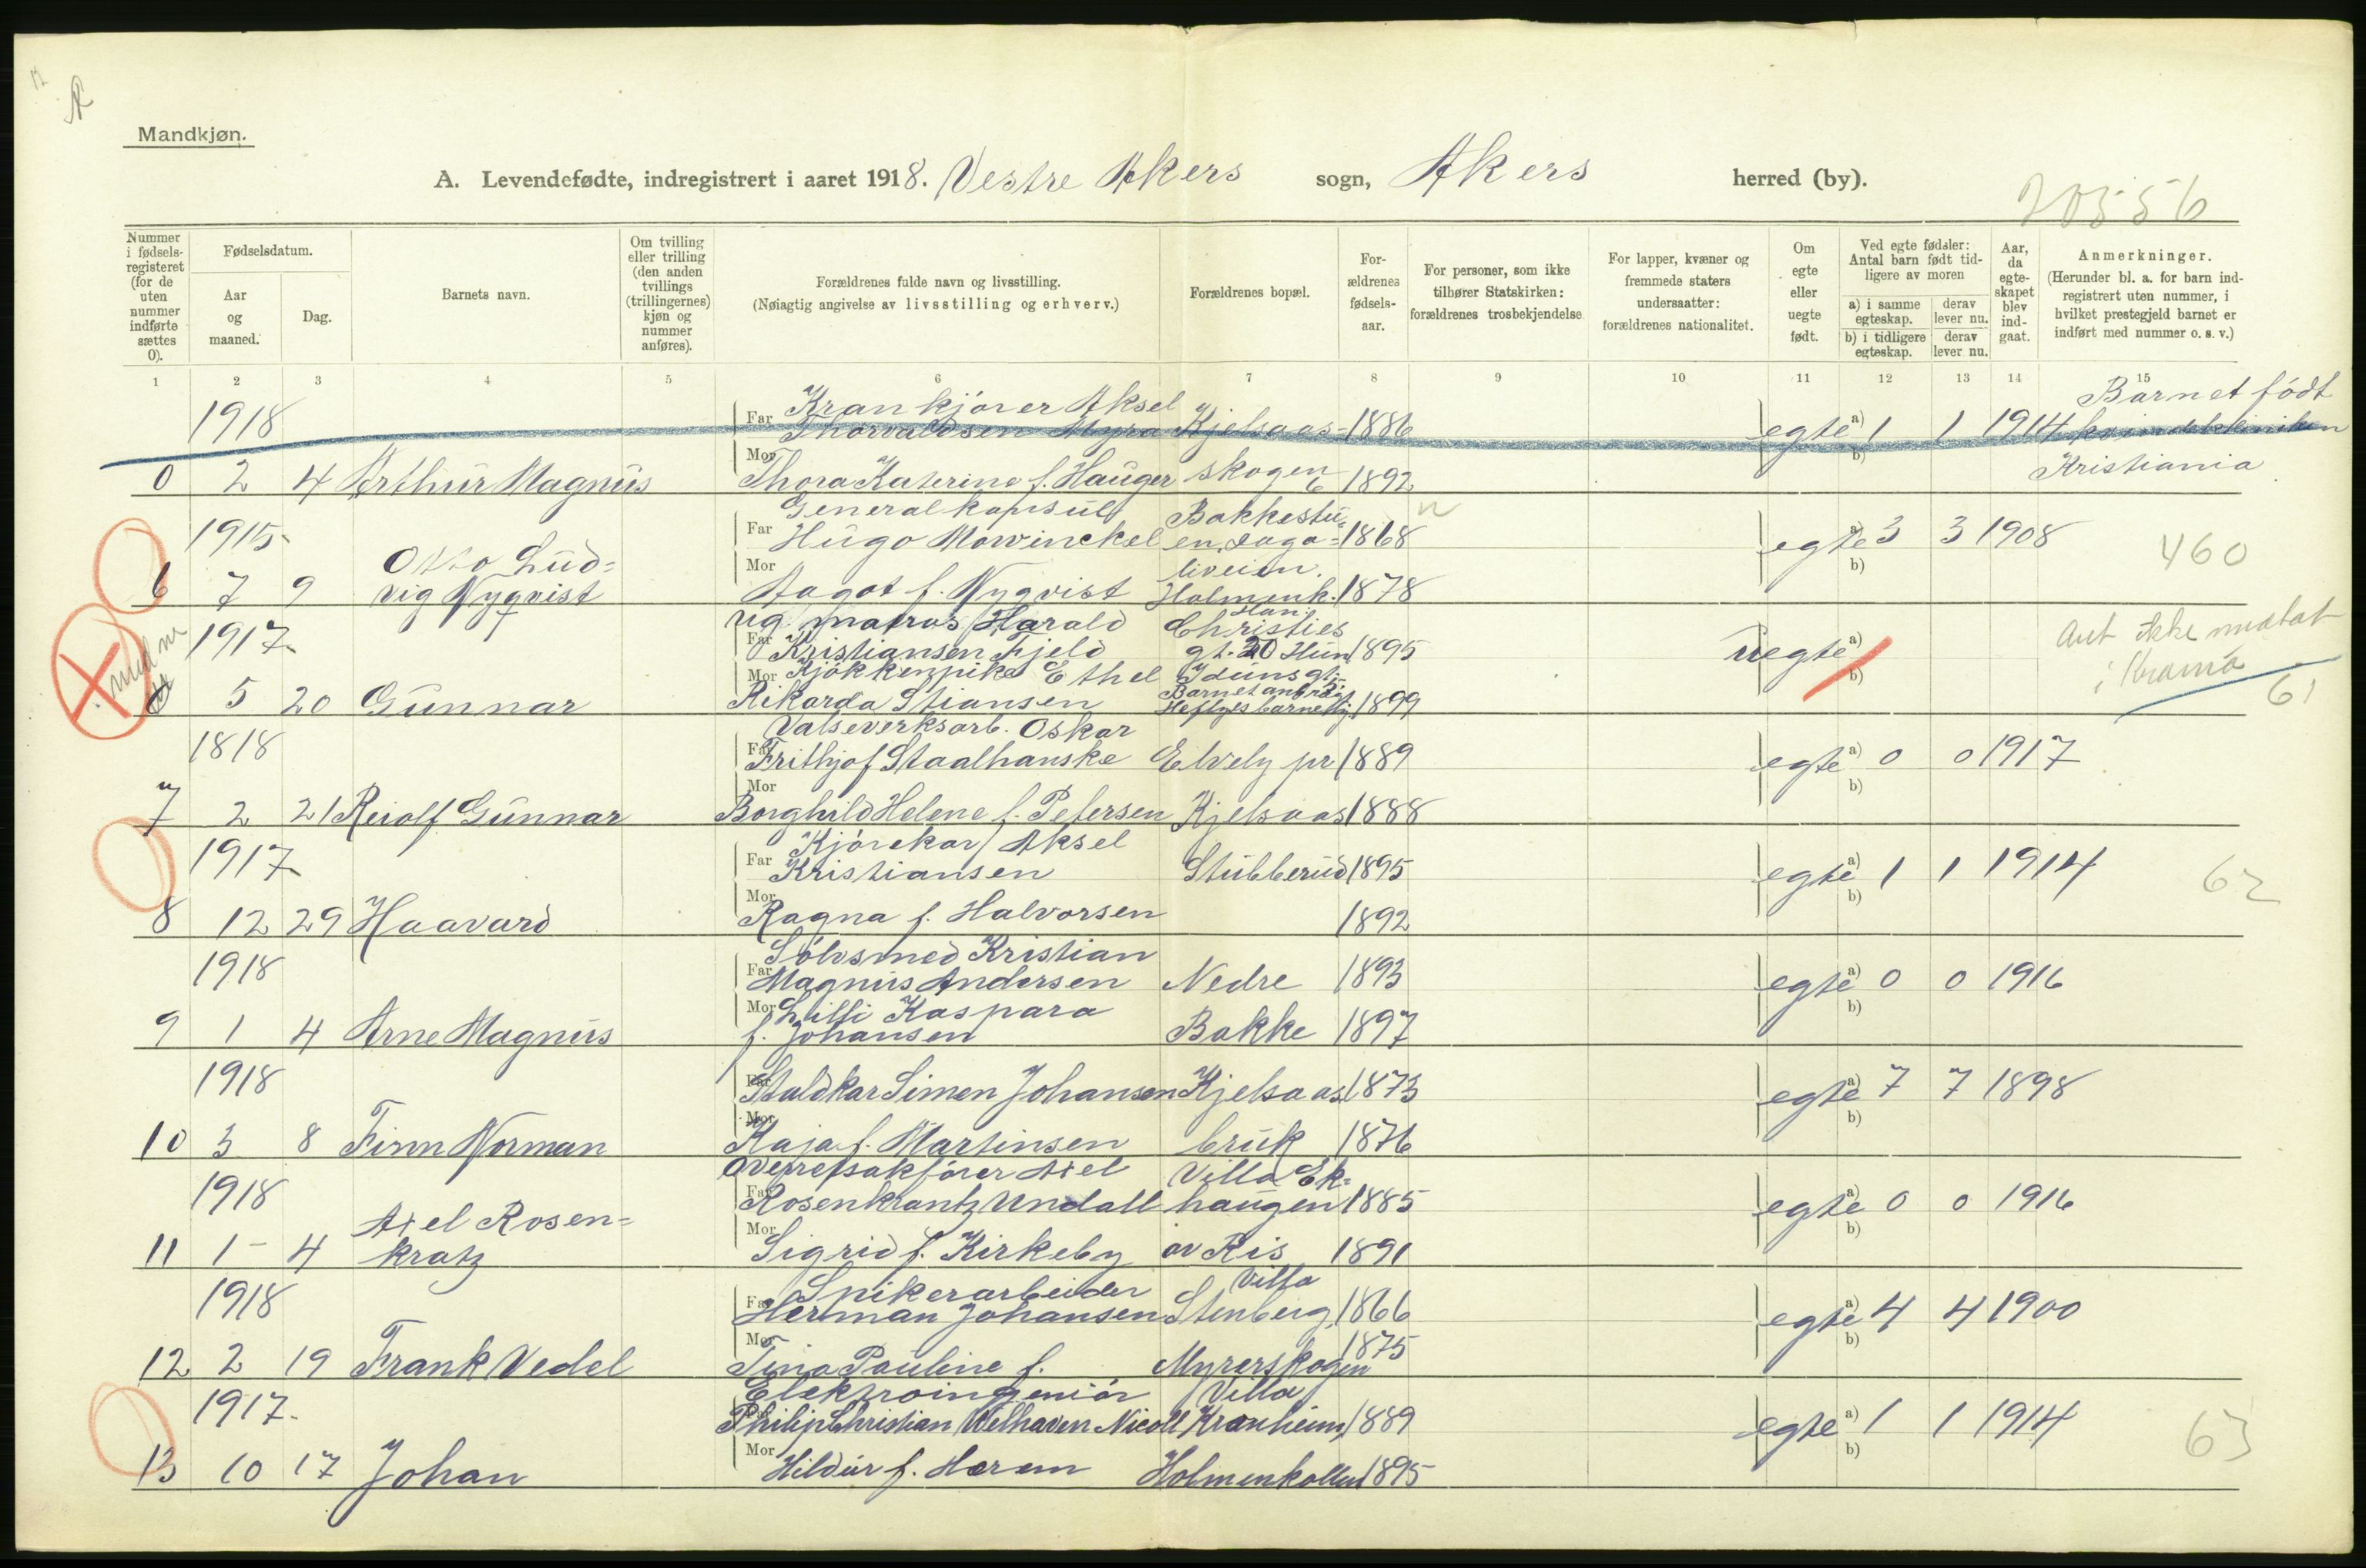 Mandkjøn.
A. Levendefødte, indregistrert i aaret 1918. Vestre Akers sogn, Akers herred (by).
20556
Nummer i fødsels-registeret (for de uten nummer indførte sættes 0).
Fødselsdatum.
Aar og maaned.
Dag.
Barnets navn.
Om tvilling eller trilling (den anden tvillings (trillingernes) kjøn og nummer anføres).
Forældrenes fulde navn og livsstilling.
(Nøiagtig angivelse av livsstilling og erhverv.)
Forældrenes bopæl.
Forældrenes fødsels-aar.
For personer, som ikke tilhører Statskirken: forældrenes trosbekjendelse
For lapper, kvæner og fremmede staters undersaatter: forældrenes nationalitet.
Om egte eller uegte født.
Ved egte fødsler: Antal barn født tidligere av moren
a) i samme egteskap.
derav lever nu.
b) i tidligere egteskap.
derav lever nu.
Aar, da egteskapet blev indgaat.
Anmerkninger.
(Herunder bl. a. for barn indregistrert uten nummer, i hvilket prestegjeld barnet er indført med nummer o. s. v.)
1 2 3 4 5 6 7 8 9 10 11 12 13 14 15
1918 Far Krankjører Aksel Barnet født
Thorvaldsen Myra Kjelsaas- 1886 egte a) 1 1 1914 kvindekliniken
0 2 4 Arthur Magnus Mor Thora Katerine f. Hauger skogen 1892 b) Kristiania
1915 Generalkonsul Bakkestu-
Otto Lud- Far Hugo Mowinckel en, 1868 egte a) 3 3 1908 460
liveien.
6 7 9 vig Nyqvist Mor Aagot f. Nyqvist Holmenk. 1878 b)
1917 ug. matros Harald Christies
Far Kristiansen Fjeld gt. 20 1895 uegte a) Aut ikke
Mor Kjøkkenpike Ethel Idunsgt. b)
0 5 20 Gunnar Rikarda Stiansen 1899 61
1818 Valseverksarb. Oskar
Far Frithjof Staalhanske Elvely pr 1889 egte a) 0 0 1917
7 2 21 Reiolf Gunnar Mor Borghild Helene f. Petersen Kjelsaas 1888 b)
1917 Kjørekar Aksel
Far Kristiansen Stubberud 1895 egte a) 1 1 1914 62
8 12 29 Haavard Mor Ragna f. Halvorsen 1892 b)
1918 Sølvsmed Kristian
Far Magnus Andersen Nedre 1893 egte a) 0 0 1916
Mor Lilli Kaspara b)
9 1 4 Arne Magnus f. Johansen Bakke 1897
1918 Far Staldkar Simen Johansen Kjelsaas 1873 egte a) 7 7 1898
10 3 8 Finn Norman Mor Kaja f. Martinsen bruk 1876 b)
1918 Overretsakfører Axel Villa Ek-
Axel Rosen- Far Rosenkrantz Undall haugen 1885 egte a) 0 0 1916
11 1 4 kratz Mor Sigrid f. Kirkeby av Ris 1891 b)
1918 Spikerarbeider Villa
Far Herman Johansen Stenberg 1866 egte a) 4 4 1900
12 2 19 Frank Vedel Mor Tina Pauline f. Myrerskogen 1875 b)
1917 Elektroingeniør Villa
Philip Christian Welhaven Nicoll Kranheim 1889 egte a) 1 1 1914 63
13 10 17 Johan Mor Hildur f. Harem Holmenkollen 1895 b)